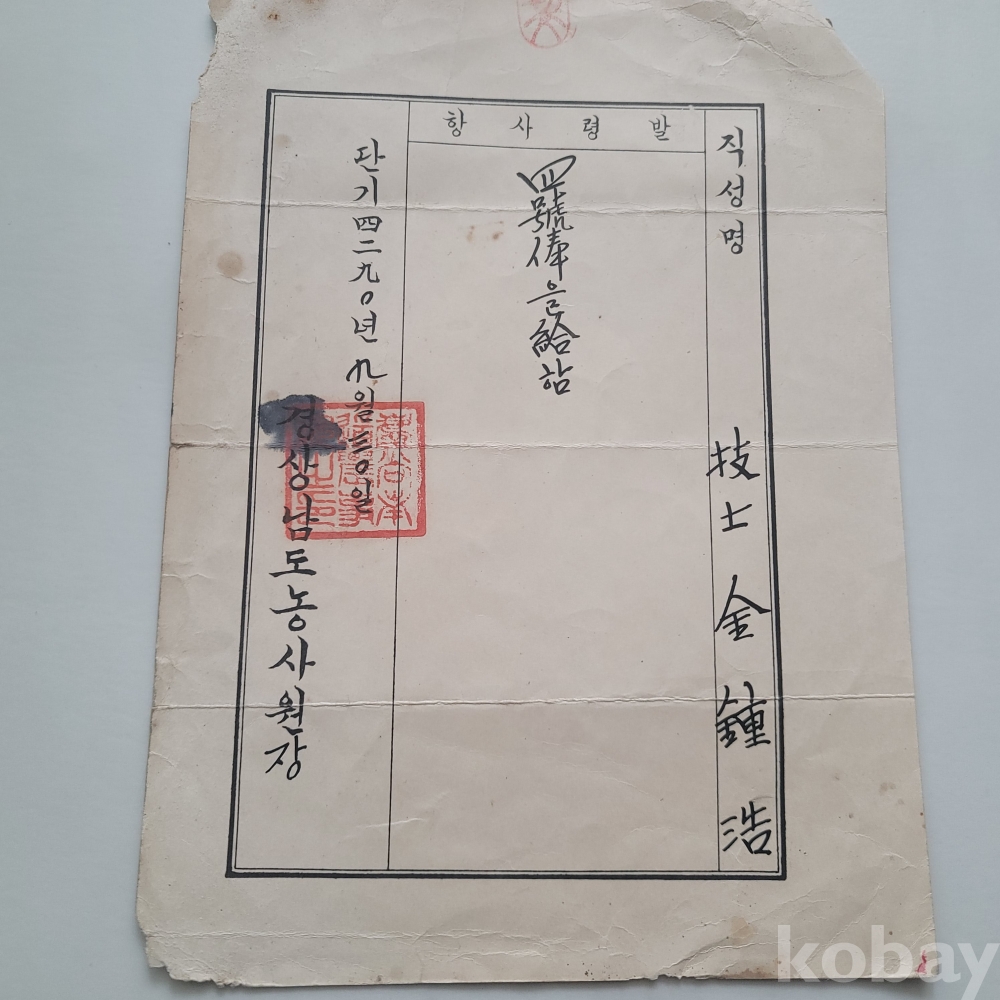 직성명 技士 金鍾浩
발령사항
四號俸을給함
단기四二九〇년九월三〇일
경상남도농사원장
kobay